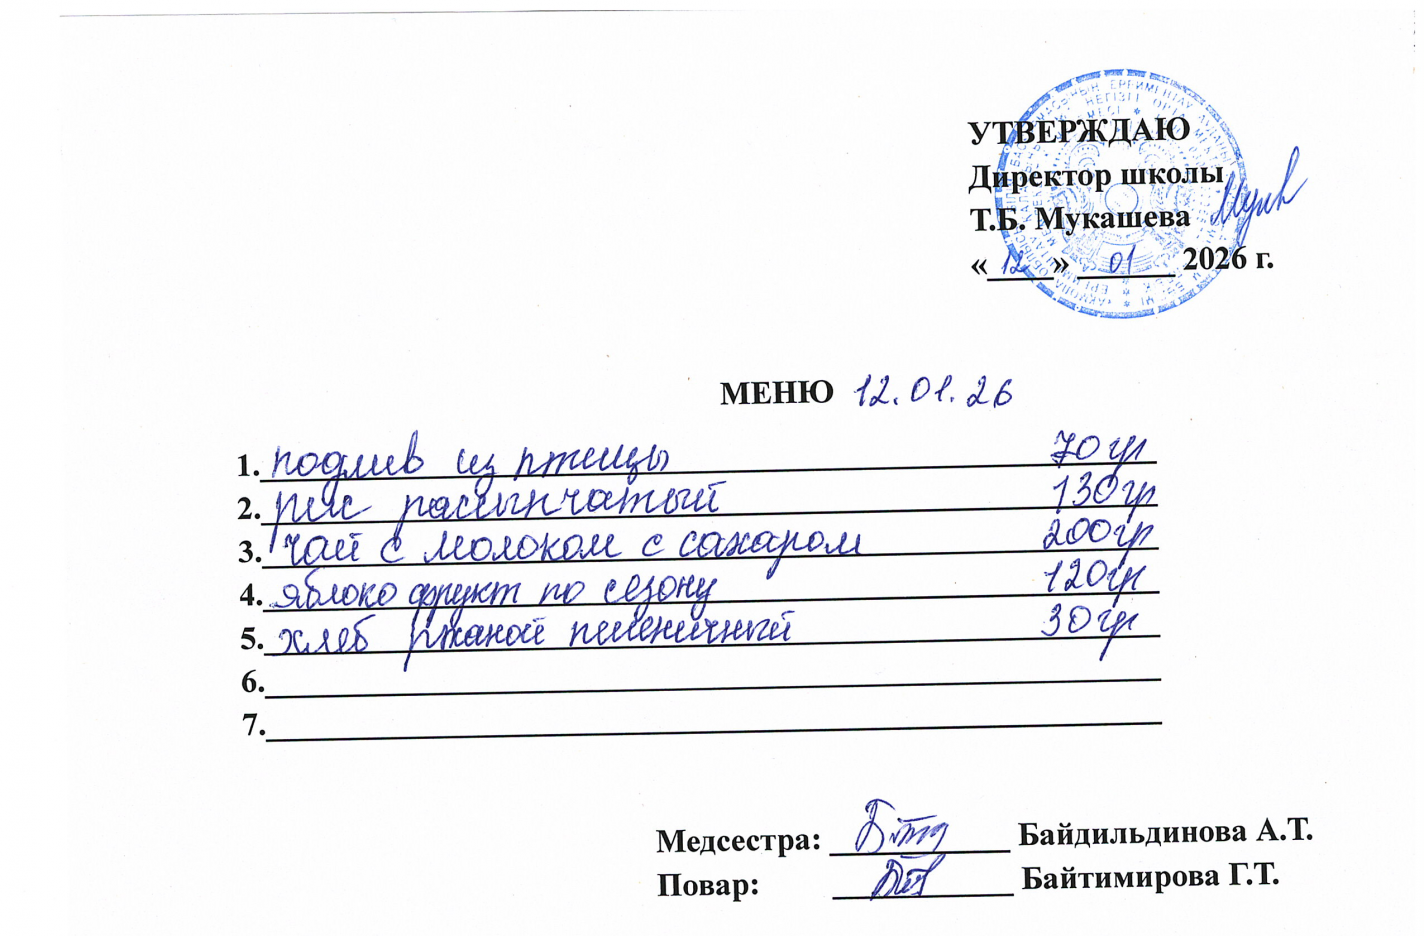 УТВЕРЖДАЮ
Директор школы
Т.Б. Мукашева
«12» 01 2026 г.
МЕНЮ 12.01.26
1. подлив из птицы 70 гр
2. рис рассыпчатый 130 гр
3. чай с молоком с сахаром 200 гр
4. яблоко фрукт по сезону 120 гр
5. хлеб ржаной пшеничный 30 гр
6.
7.
Медсестра: Байдильдинова А.Т.
Повар: Байтимирова Г.Т.